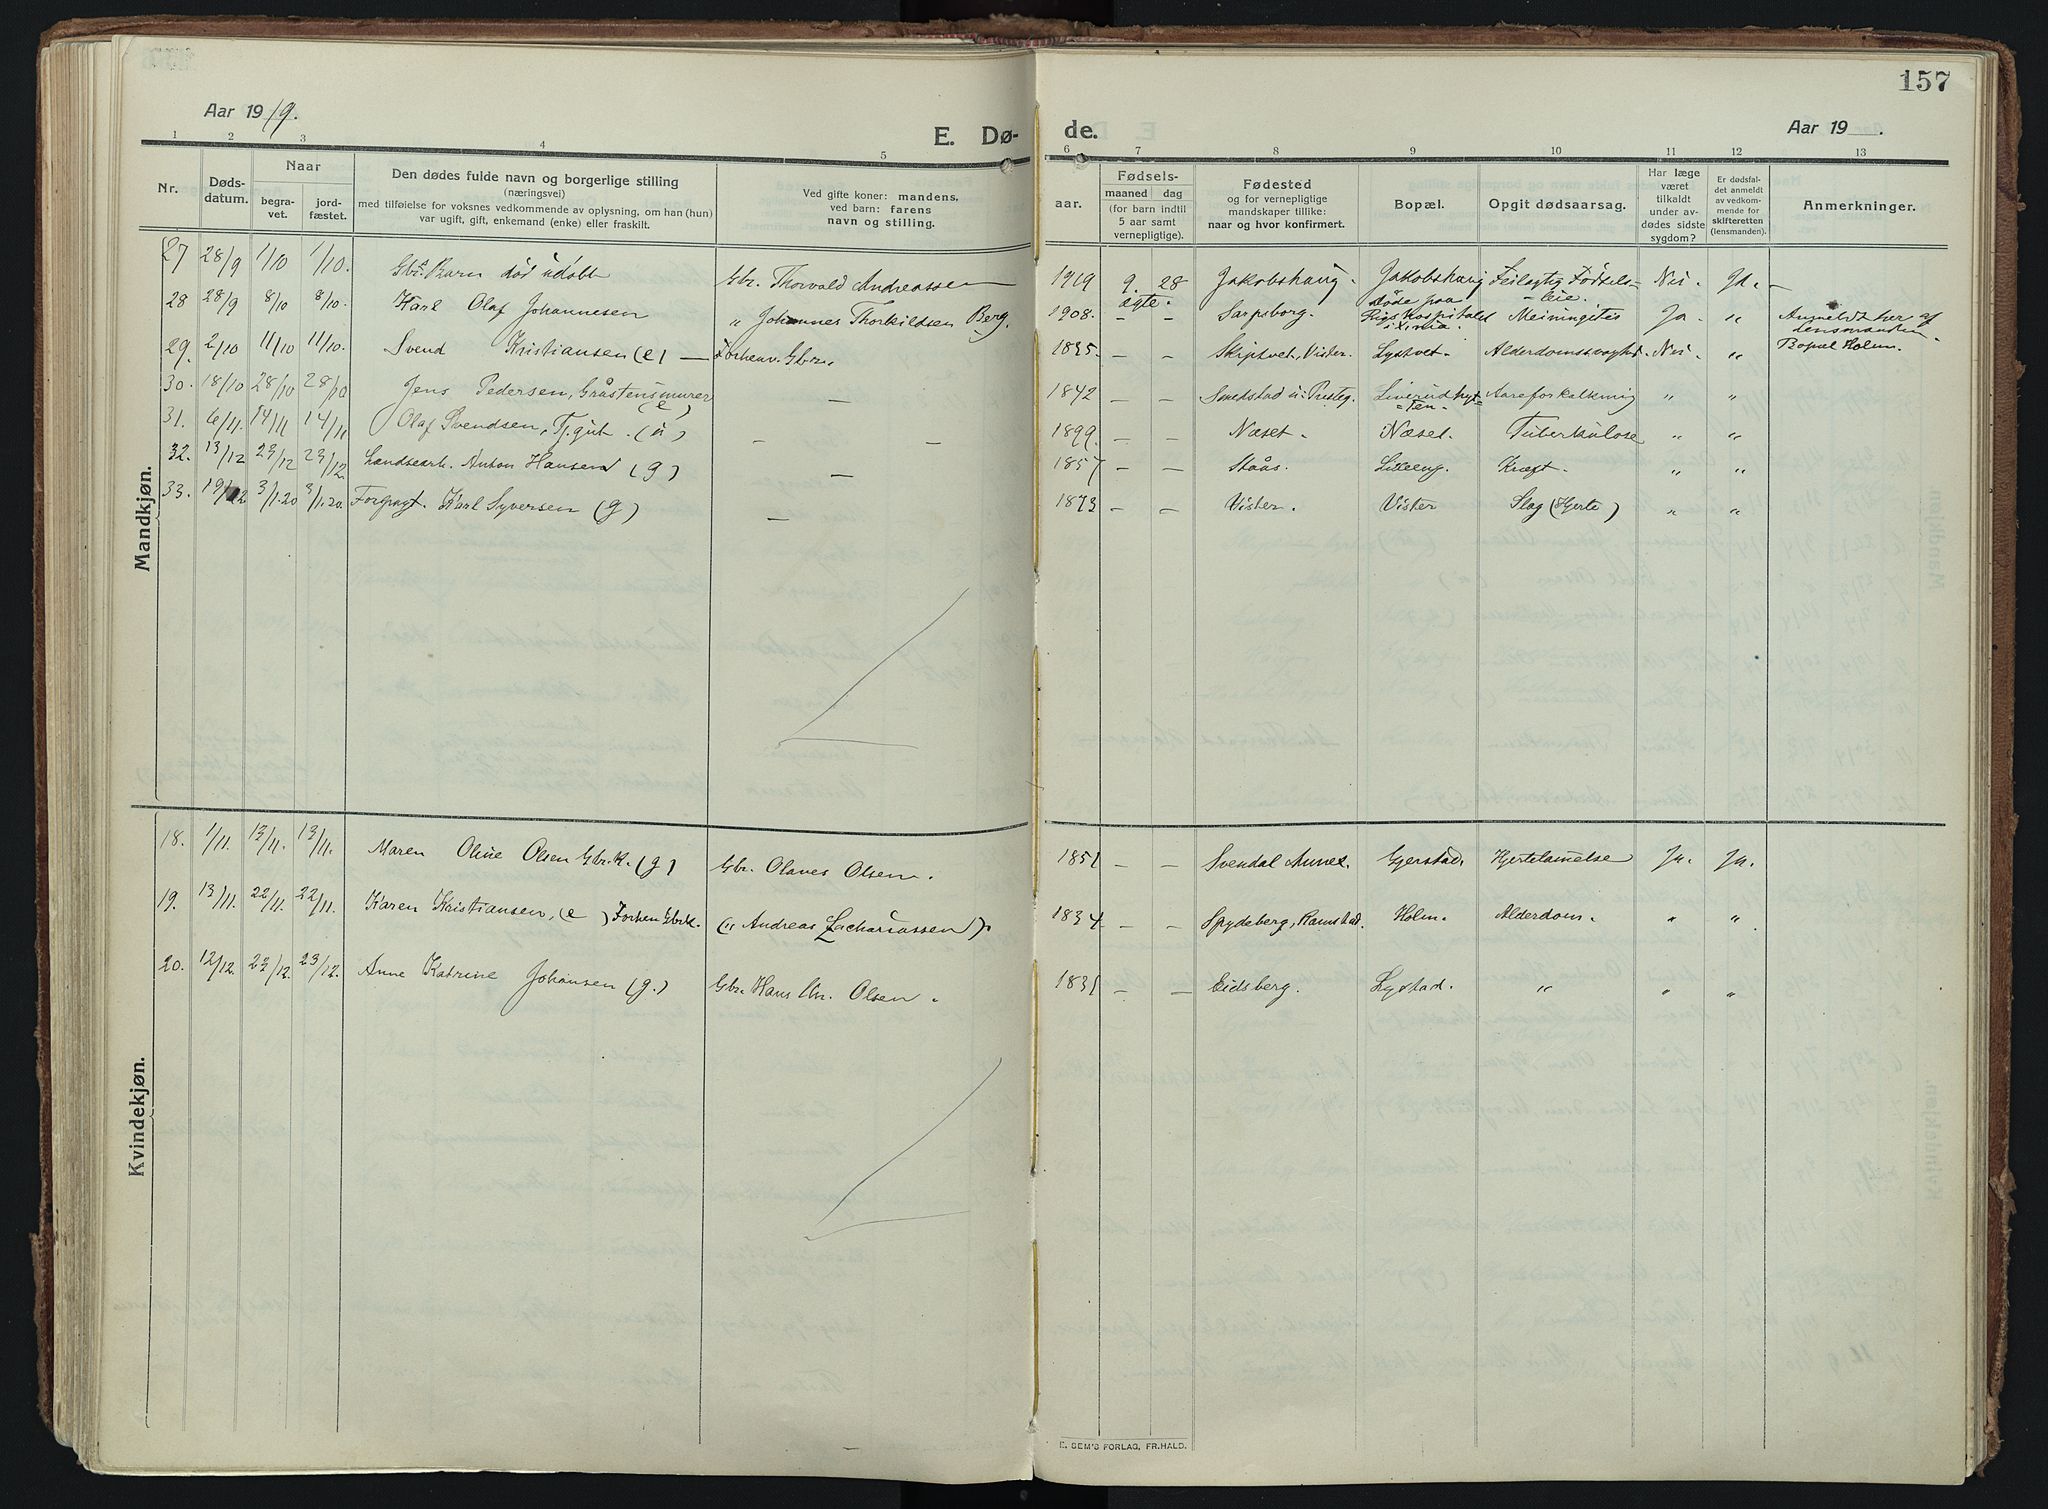 157
Aar 1919.
E. Dø-
de.
Aar 19 .
1 2 3 4 5 6 7 8 9 10 11 12 13
Nr.
Døds-
datum.
Naar
begra-
vet.
jord-
fæstet.
Den dødes fulde navn og borgerlige stilling
(næringsvei)
med tilføielse for voksnes vedkommende av oplysning, om han (hun)
var ugift, gift, enkemand (enke) eller fraskilt.
Ved gifte koner: mandens,
ved barn: farens
navn og stilling.
aar.
Fødsels-
maaned dag
(for barn indtil
5 aar samt
vernepligtige).
Fødested
og for vernepligtige
mandskaper tillike:
naar og hvor konfirmert.
Bopæl.
Opgit dødsaarsag.
Har læge
været
tilkaldt
under av-
dødes sidste
sygdom?
Er dødsfal-
det anmeldt
av vedkom-
mende for
skifteretten
(lensmanden).
Anmerkninger.
Mandkjøn.
27 28/9 1/10 1/10. Gbr. Barn død udøbt Gbr. Thorvald Andreassen 1919 9. 28 Jakobshaug. Jakobshaug Feilagtig Fødsels- Nei. Ja. —
ægte. leie.
28 28/9 8/10 8/10. Karl Olaf Johannesen " Johannes Thorkildsen Berg. 1908. — Sarpsborg. Døde paa Rigshospitalet Meiningites Ja " Anmeldt her af
lensmanden.
Bopæl Holm.
29. 2/10 11/10 11/10. Svend Kristiansen (e) — Forhenv. Gbr. 1835. — — Skiptvet, Vister. Lystvet. Alderdomssvaghed. Nei "
30. 18/10 28/10 28/10 Jens Pedersen, Gråstensmurer (e) — 1842 — — Smedstad i Presteg. Liverudhyt-
ten. Aareforkalkning " "
31. 6/11. 14/11 14/11 Olaf Svendsen, Tj.gut. (u) — — 1899. — — Næset. Næset. Tuberkulose " "
32. 13/12 23/12 23/12. Landsearb. Anton Hansen (g) — 1857 — — Staås. Lilleeng. Kræft. " "
33. 19/12 3/1.20 3/1.20. Forpagt. Karl Syversen (g) — 1873 — — Vister. Vister Slag (Hjerte) " "
Kvindekjøn.
18. 1/11. 13/11. 13/11. Maren Oline Olsen Gbr.K. (g) Gbr. Olaves Olsen. 1851 — — Svendal Annex. Gjerstad. Hjertelamelse Ja. Ja.
19. 13/11. 22/11. 22/11. Karen Kristiansen, (e) Forhen Gbrk. (" Andreas Zachariassen). 1834 — — Spydeberg, Ramstad. Holm. Alderdom. " "
20. 12/12. 23/12. 23/12. Anne Katrine Johansen (g.) Gbr. Hans Chr. Olsen. 1831 — — Eidsberg. Lystad. " " "
E. SEM'S FORLAG, FR.HALD.